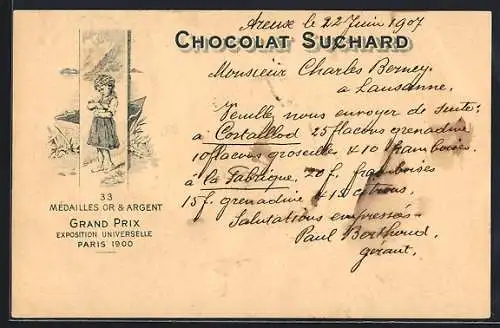 Areuse le 22 Juin 1907
CHOCOLAT SUCHARD
Monsieur Charles Berney
a Lausanne.
Veuillez nous envoyer de suite:
à Cortaillod 25 flacons grenadine
10 flacons groseille & 10 framboises.
à la Fabrique, 20 f. framboises
15 f. grenadine & 15 citrons.
Salutations empressées
Paul Berthoud
gérant.
33
MÉDAILLES OR & ARGENT
GRAND PRIX
EXPOSITION UNIVERSELLE
PARIS 1900